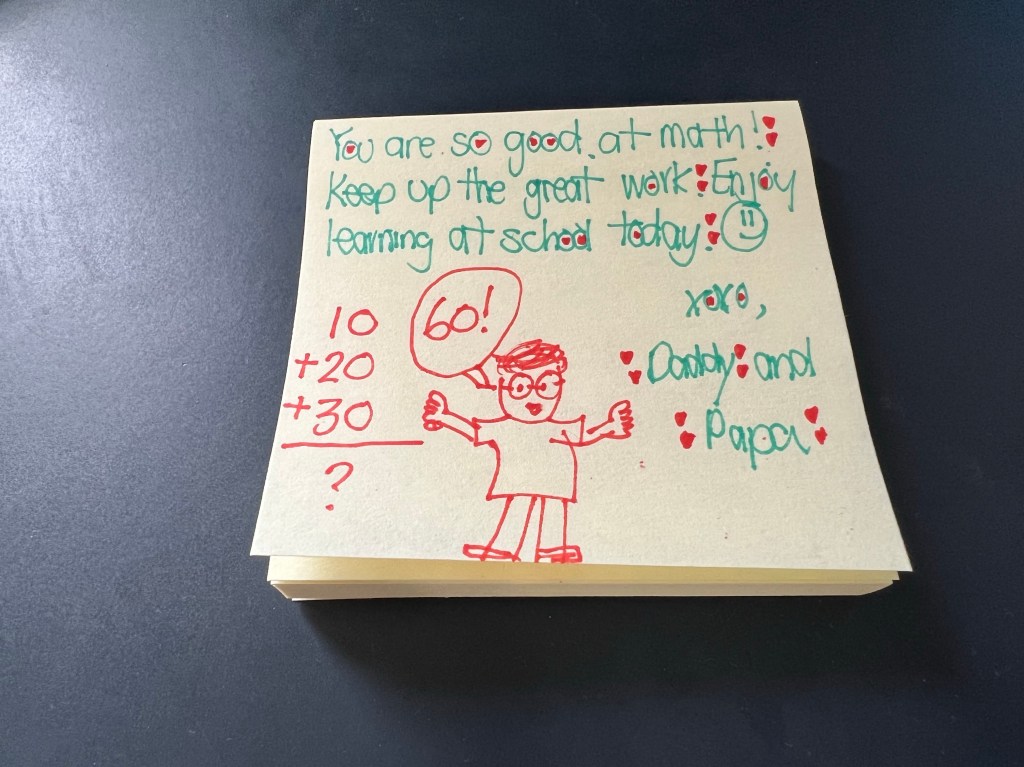 You are so good at math!
Keep up the great work! Enjoy
learning at school today!
xoxo,
Daddy and
Papa
60!
10
+20
+30
?